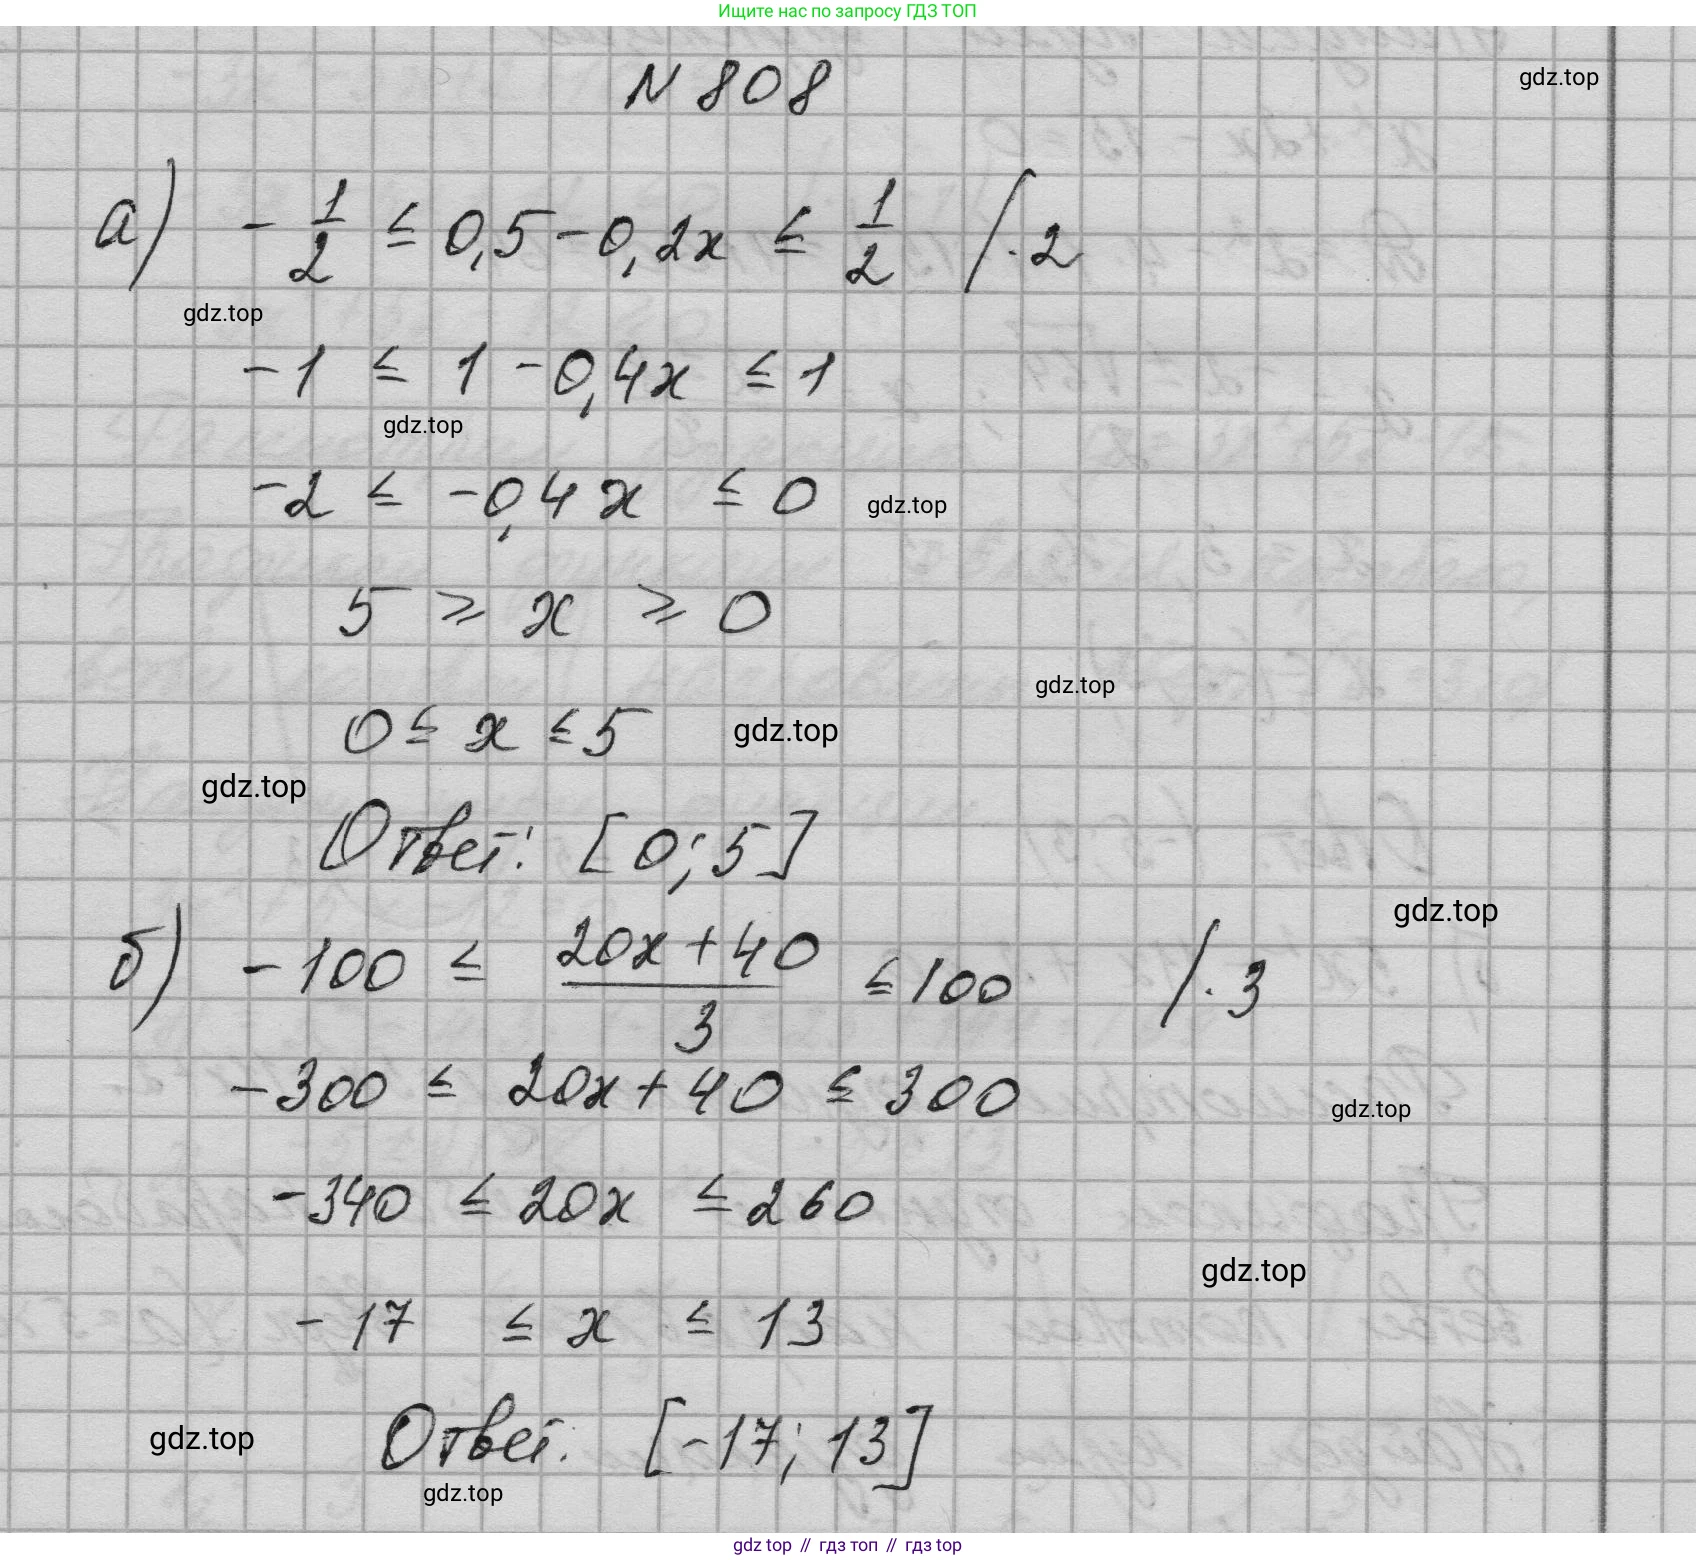 Ищите нас по запросу ГДЗ ТОП
N 808
gdz.top
а) -1/2 ≤ 0,5 - 0,2x ≤ 1/2 / · 2
gdz.top
-1 ≤ 1 - 0,4x ≤ 1
gdz.top
-2 ≤ -0,4x ≤ 0
gdz.top
5 ⩾ x ⩾ 0
gdz.top
0 ≤ x ≤ 5
gdz.top
gdz.top
Ответ: [0; 5]
gdz.top
б) -100 ≤ (20x + 40)/3 ≤ 100 / · 3
-300 ≤ 20x + 40 ≤ 300
gdz.top
-340 ≤ 20x ≤ 260
gdz.top
-17 ≤ x ≤ 13
gdz.top
Ответ: [-17; 13]
gdz.top
gdz top // гдз топ // гдз top